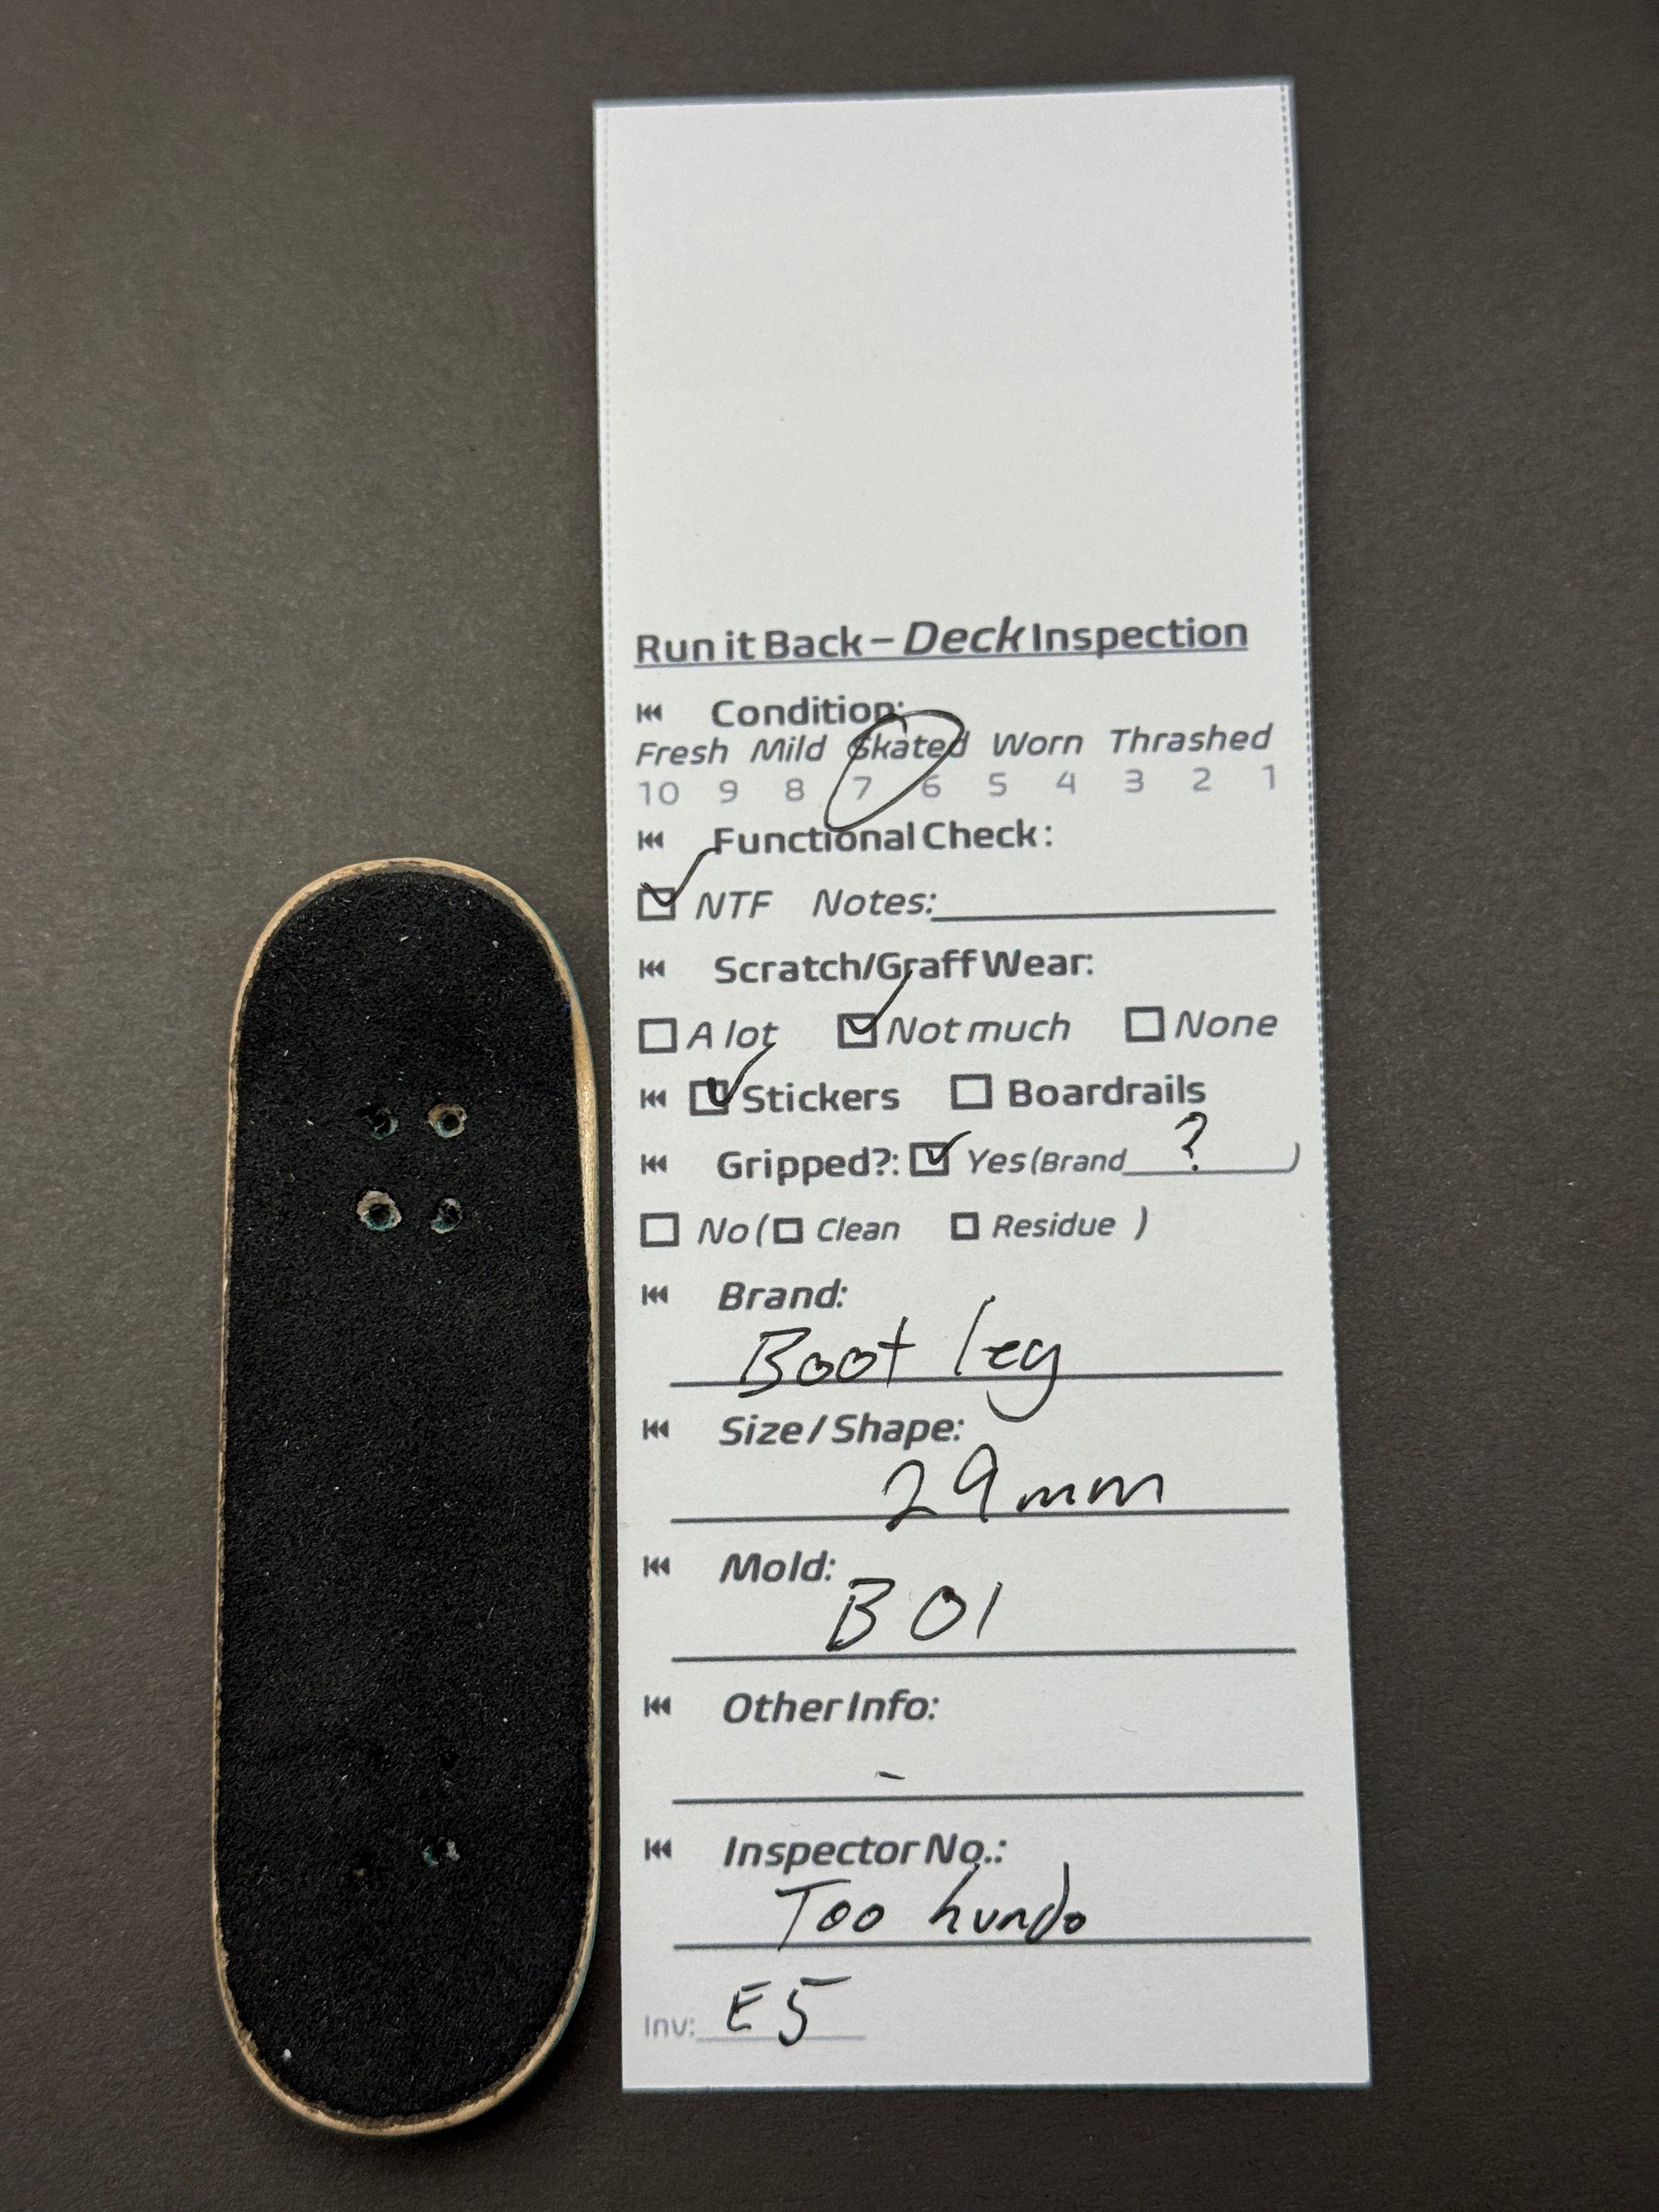 Run it Back – Deck Inspection
Condition:
Fresh Mild Skated Worn Thrashed
10 9 8 7 6 5 4 3 2 1
Functional Check:
NTF Notes:
Scratch/Graff Wear:
A lot Not much None
Stickers Boardrails
Gripped?: Yes (Brand ? )
No ( Clean Residue )
Brand:
Boot leg
Size / Shape:
29mm
Mold:
B01
Other Info:
-
Inspector No.:
Too hundo
Inv: E5